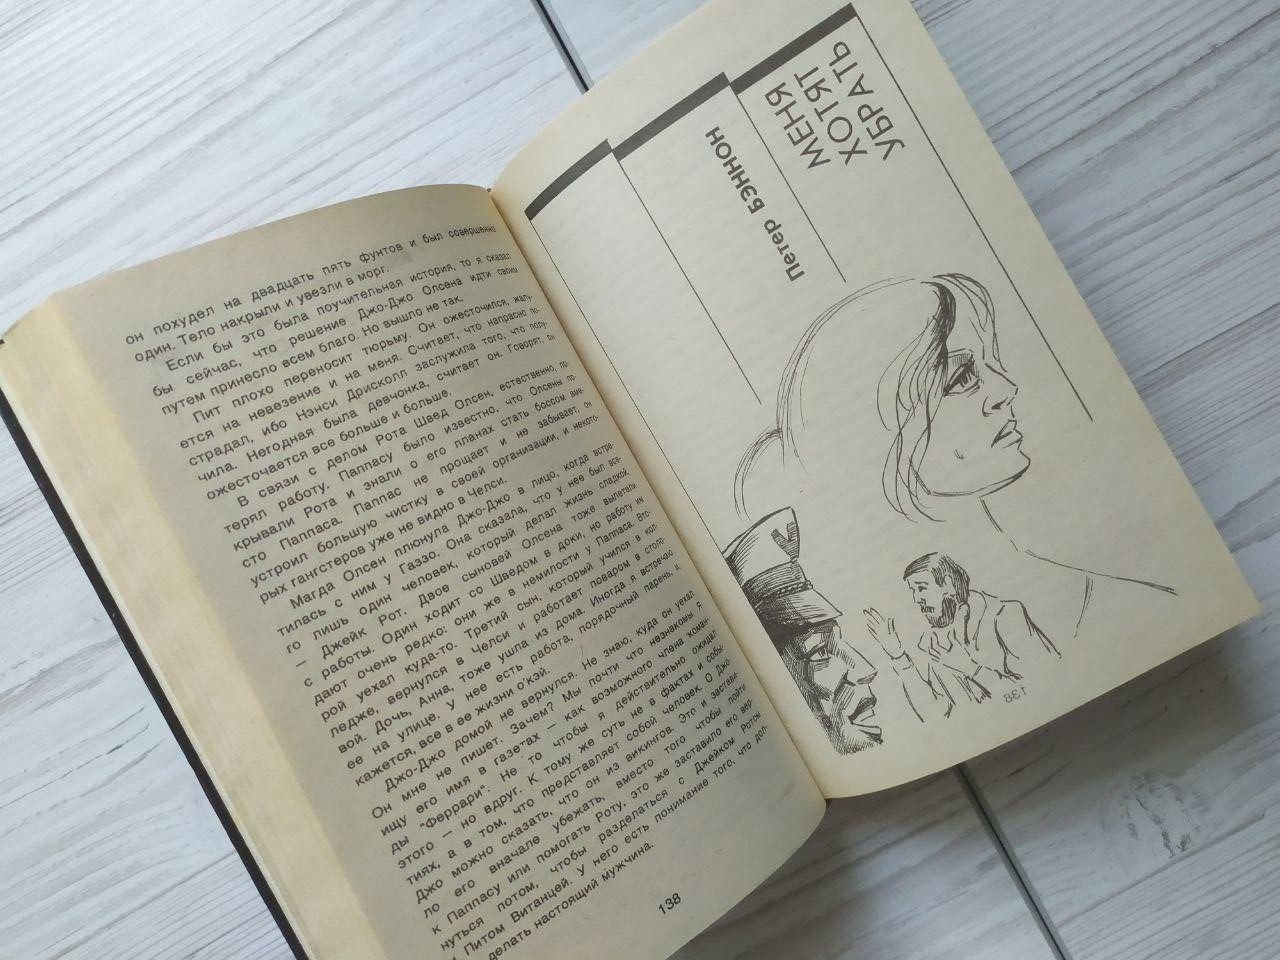 он похудел на двадцать пять фунтов и был совершенно
один. Тело накрыли и увезли в морг.
Если бы это была поучительная история, то я сказал
бы сейчас, что решение Джо-Джо Олсена идти своим
путем принесло всем благо. Но вышло не так.
Пит плохо переносит тюрьму. Он ожесточился, жалу-
ется на невезение и на меня. Считает, что напрасно по-
страдал, ибо Нэнси Дрисколл заслужила того, что полу-
чила. Негодная была девчонка, считает он. Говорят, он
ожесточается все больше и больше.
В связи с делом Рота Швед Олсен, естественно, по-
терял работу, Паппасу было известно, что Олсены по-
крывали Рота и знали о его планах стать боссом вме-
сто Паппаса. Паппас не прощает и не забывает, он
устроил большую чистку в своей организации, и некото-
рых гангстеров уже не видно в Челси.
Магда Олсен плюнула Джо-Джо в лицо, когда встре-
тилась с ним у Газзо. Она сказала, что у нее был все-
го лишь один человек, который делал жизнь сладкой,
— Джейк Рот. Двое сыновей Олсена тоже вылетели
с работы. Один ходит со Шведом в доки, но работу им
дают очень редко: они же в немилости у Паппаса. Вто-
рой уехал куда-то. Третий сын, который учился в кол-
ледже, вернулся в Челси и работает поваром в столо-
вой. Дочь, Анна, тоже ушла из дома. Иногда я встречаю
ее на улице. У нее есть работа, порядочный парень, и,
кажется, все в ее жизни о'кэй.
Джо-Джо домой не вернулся. Не знаю, куда он уехал.
Он мне не пишет. Зачем? Мы почти что незнакомы. Я
ищу его имя в газетах — как возможного члена коман-
ды "Феррари". Не то чтобы я действительно ожидал
этого — но вдруг. К тому же суть не в фактах и собы-
тиях, а в том, что представляет собой человек. О Джо-
Джо можно сказать, что он из викингов. Это и застави-
ло его вначале убежать, вместо того чтобы пойти
к Паппасу или помогать Роту, это же заставило его вер-
нуться потом, чтобы разделаться с Джейком Ротом
и Питом Витанцей. У него есть понимание того, что дол-
делать настоящий мужчина.
138
Петер Бэннон
МЕНЯ
ХОТЯТ
УБРАТЬ
138